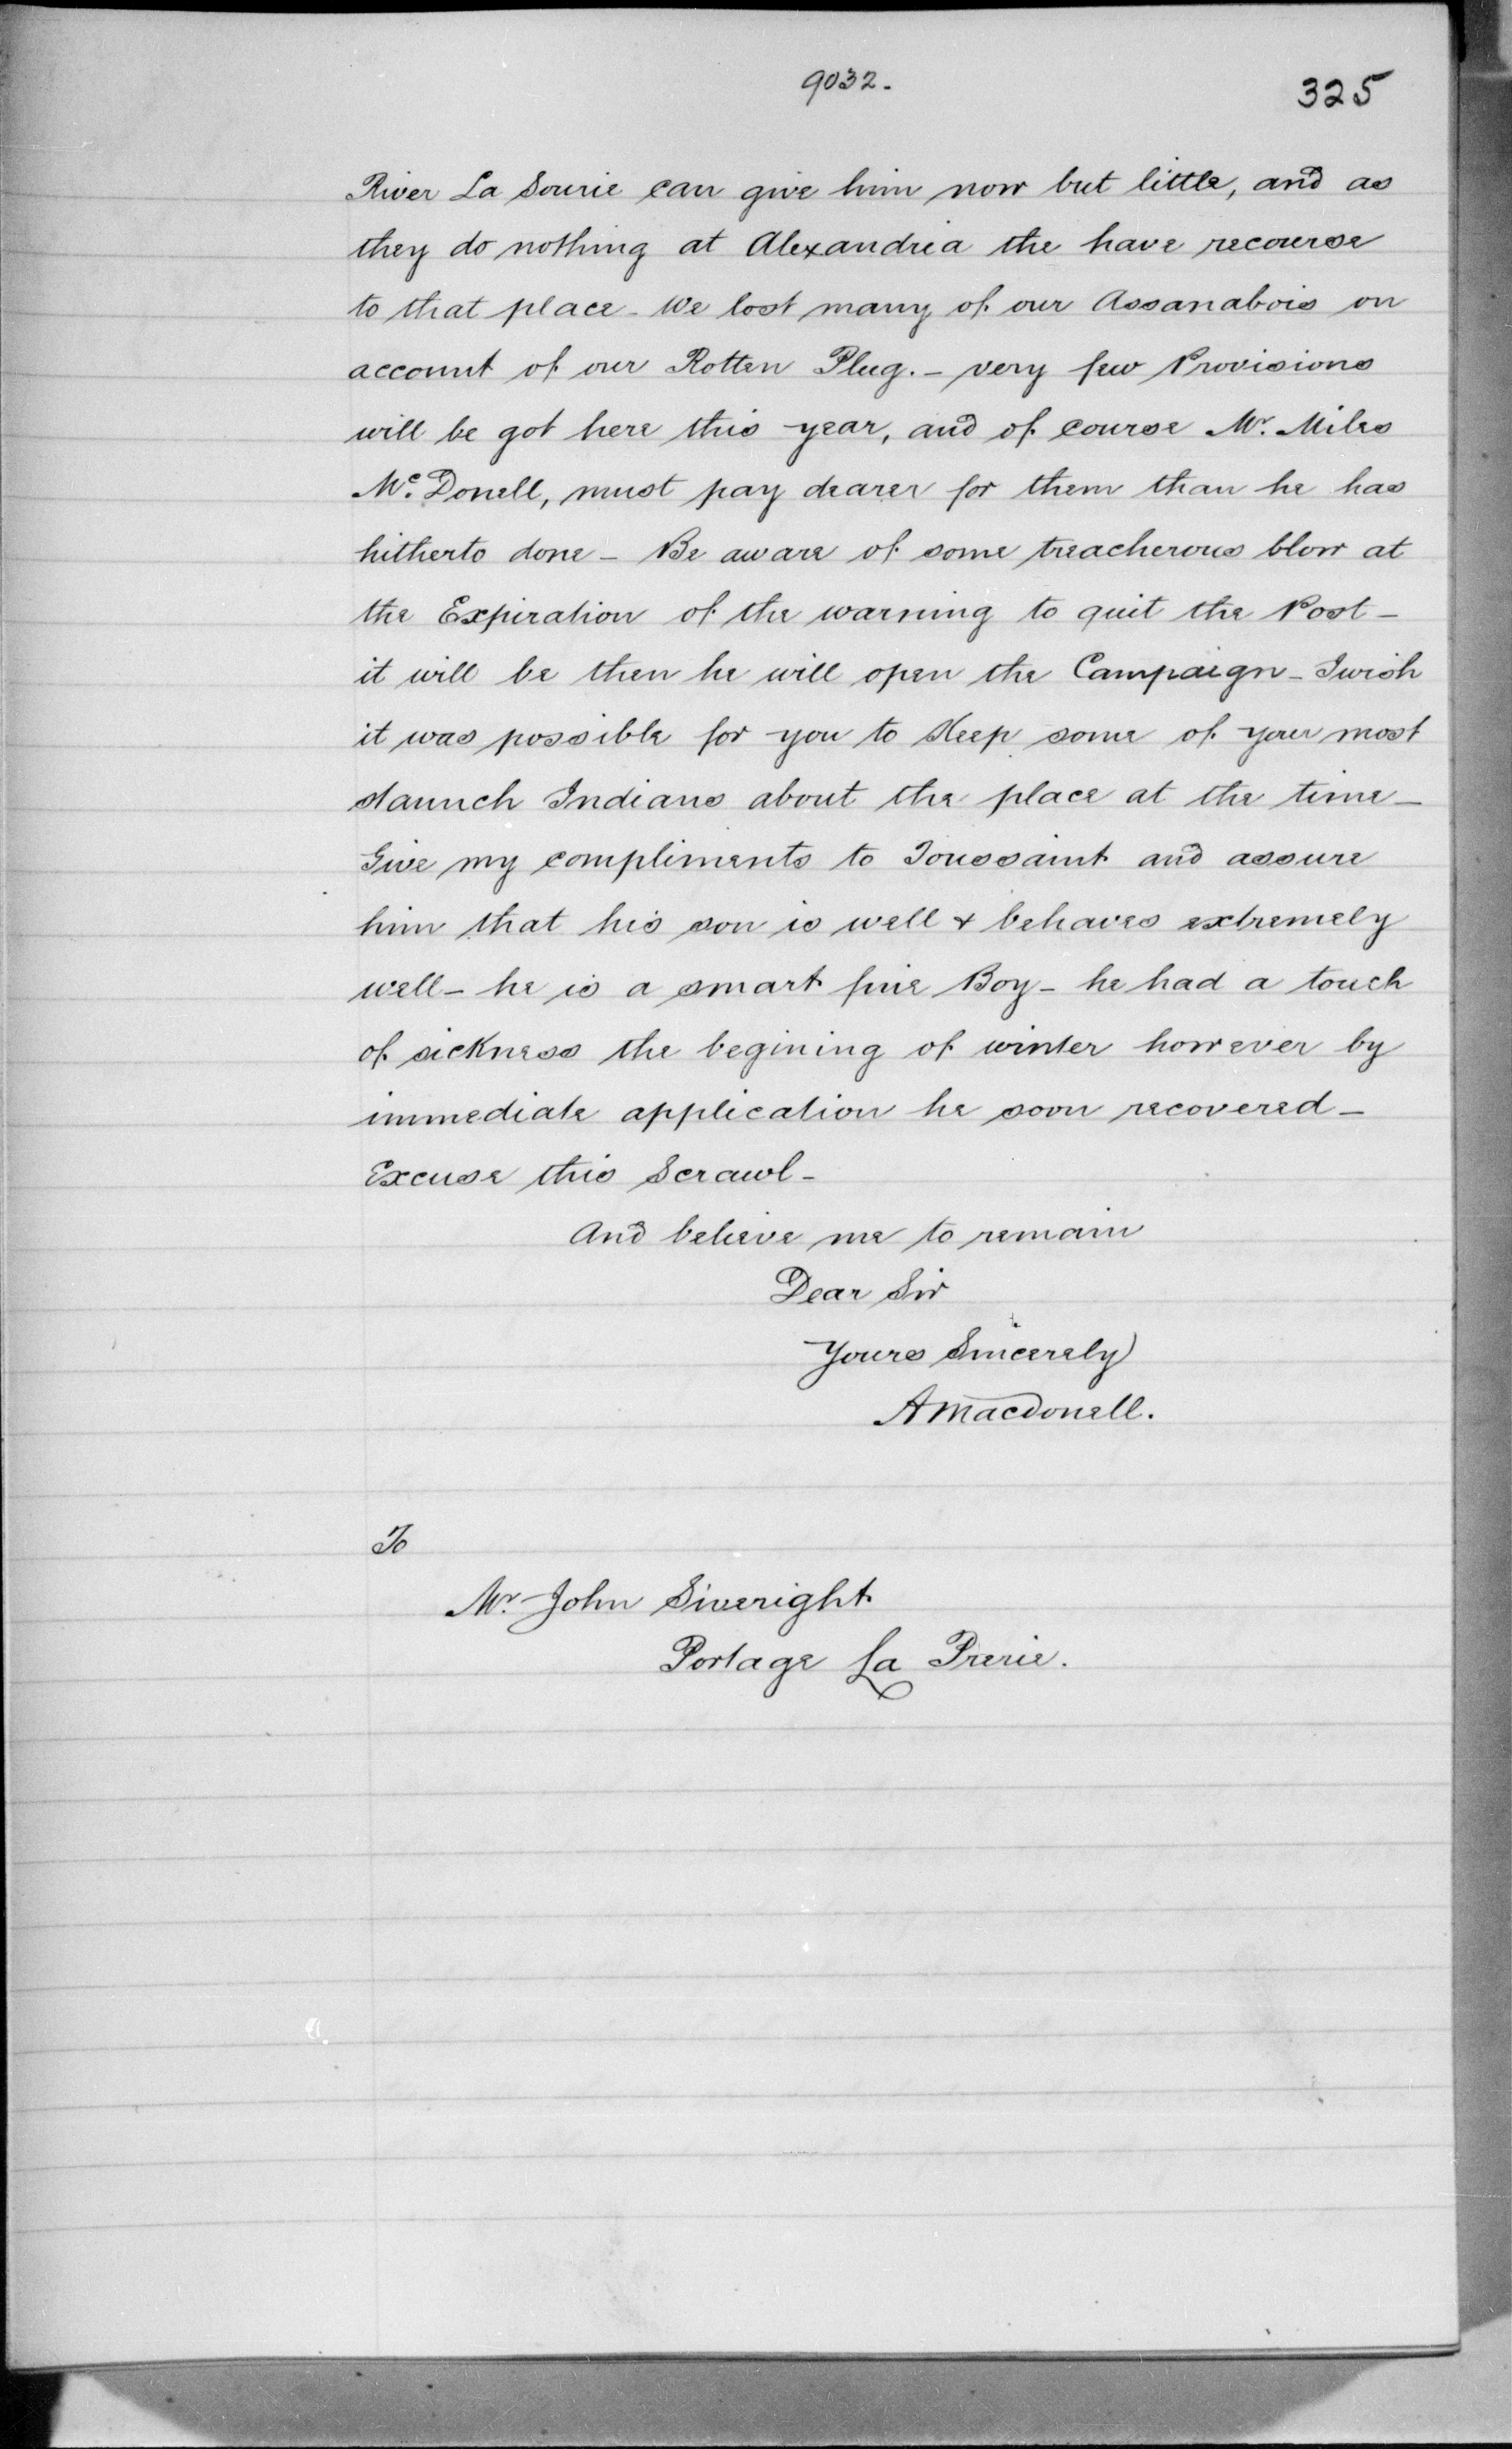 9032.
325
River La Sourie can give him now but little, and as
they do nothing at Alexandria the have recourse
to that place - We lost many of our Assanabois on
account of our Rotten Plug. - very few Provisions
will be got here this year, and of course Mr. Miles
Mc. Donell, must pay dearer for them than he has
hitherto done - Be aware of some treacherous blow at
the Expiration of the warning to quit the Post -
it will be then he will open the Campaign - I wish
it was possible for you to Keep some of your most
staunch Indians about the place at the time -
Give my compliments to Toussaint and assure
him that his son is well & behaves extremely
well - he is a smart fine Boy - he had a touch
of sickness the begining of winter however by
immediate application he soon recovered -
Excuse this Scrawl -
And believe me to remain
Dear Sir
Yours Sincerely
AMacdonell.
To
Mr. John Siveright
Portage La Prerie.